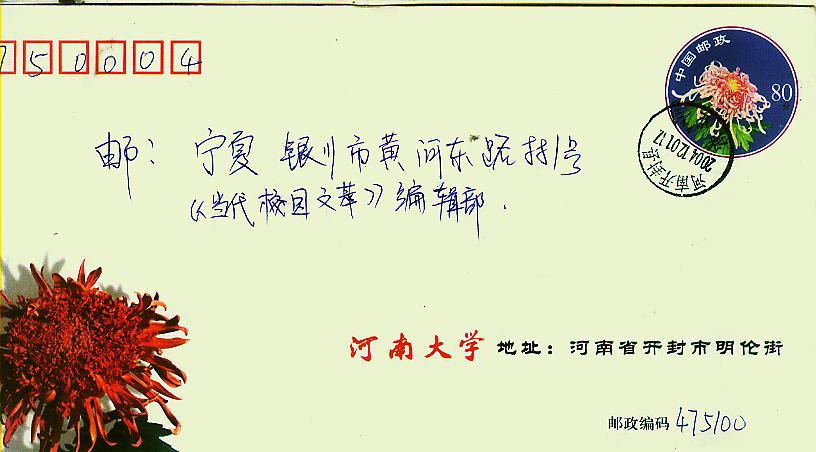 750004
中国邮政
80分
河南开封
2004.12.01.12
邮：宁夏 银川市黄河东路村1号
《当代校园文萃》编辑部.
河南大学 地址：河南省开封市明伦街
邮政编码 475100